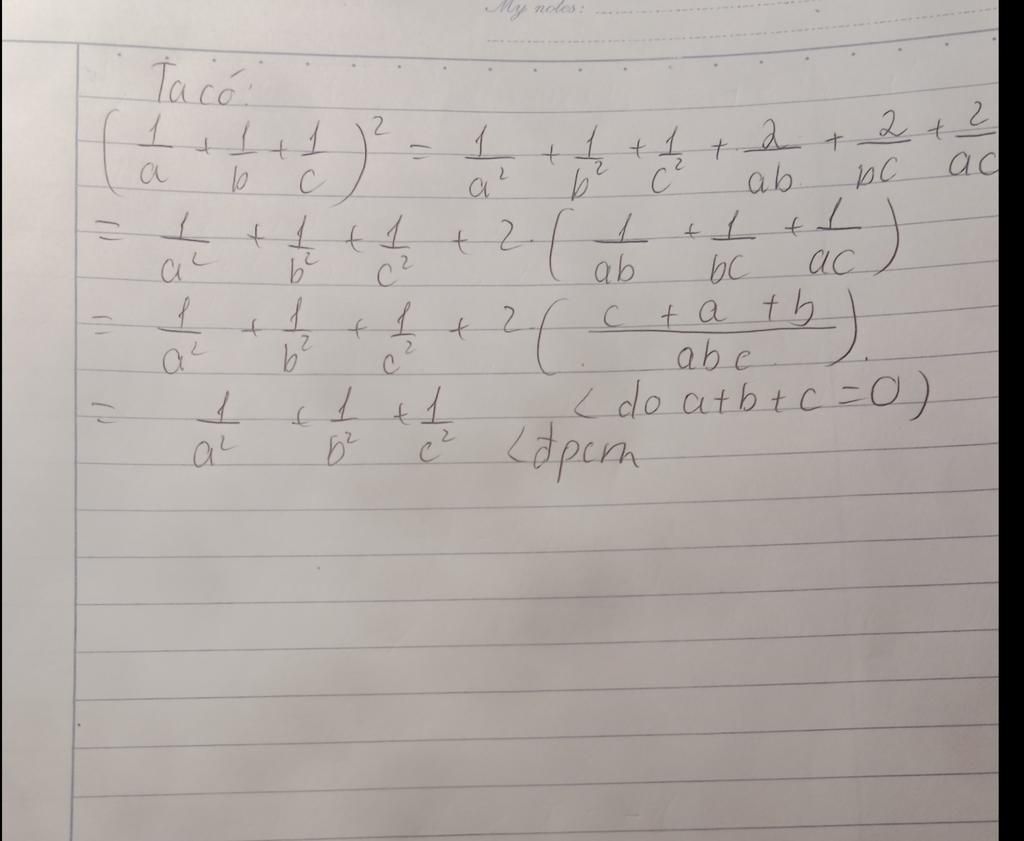 My notes:
Ta có:
(1/a + 1/b + 1/c)² = 1/a² + 1/b² + 1/c² + 2/ab + 2/bc + 2/ac
= 1/a² + 1/b² + 1/c² + 2.(1/ab + 1/bc + 1/ac)
= 1/a² + 1/b² + 1/c² + 2.((c + a + b)/abc).
= 1/a² + 1/b² + 1/c² <do a+b+c=0)
<đpcm